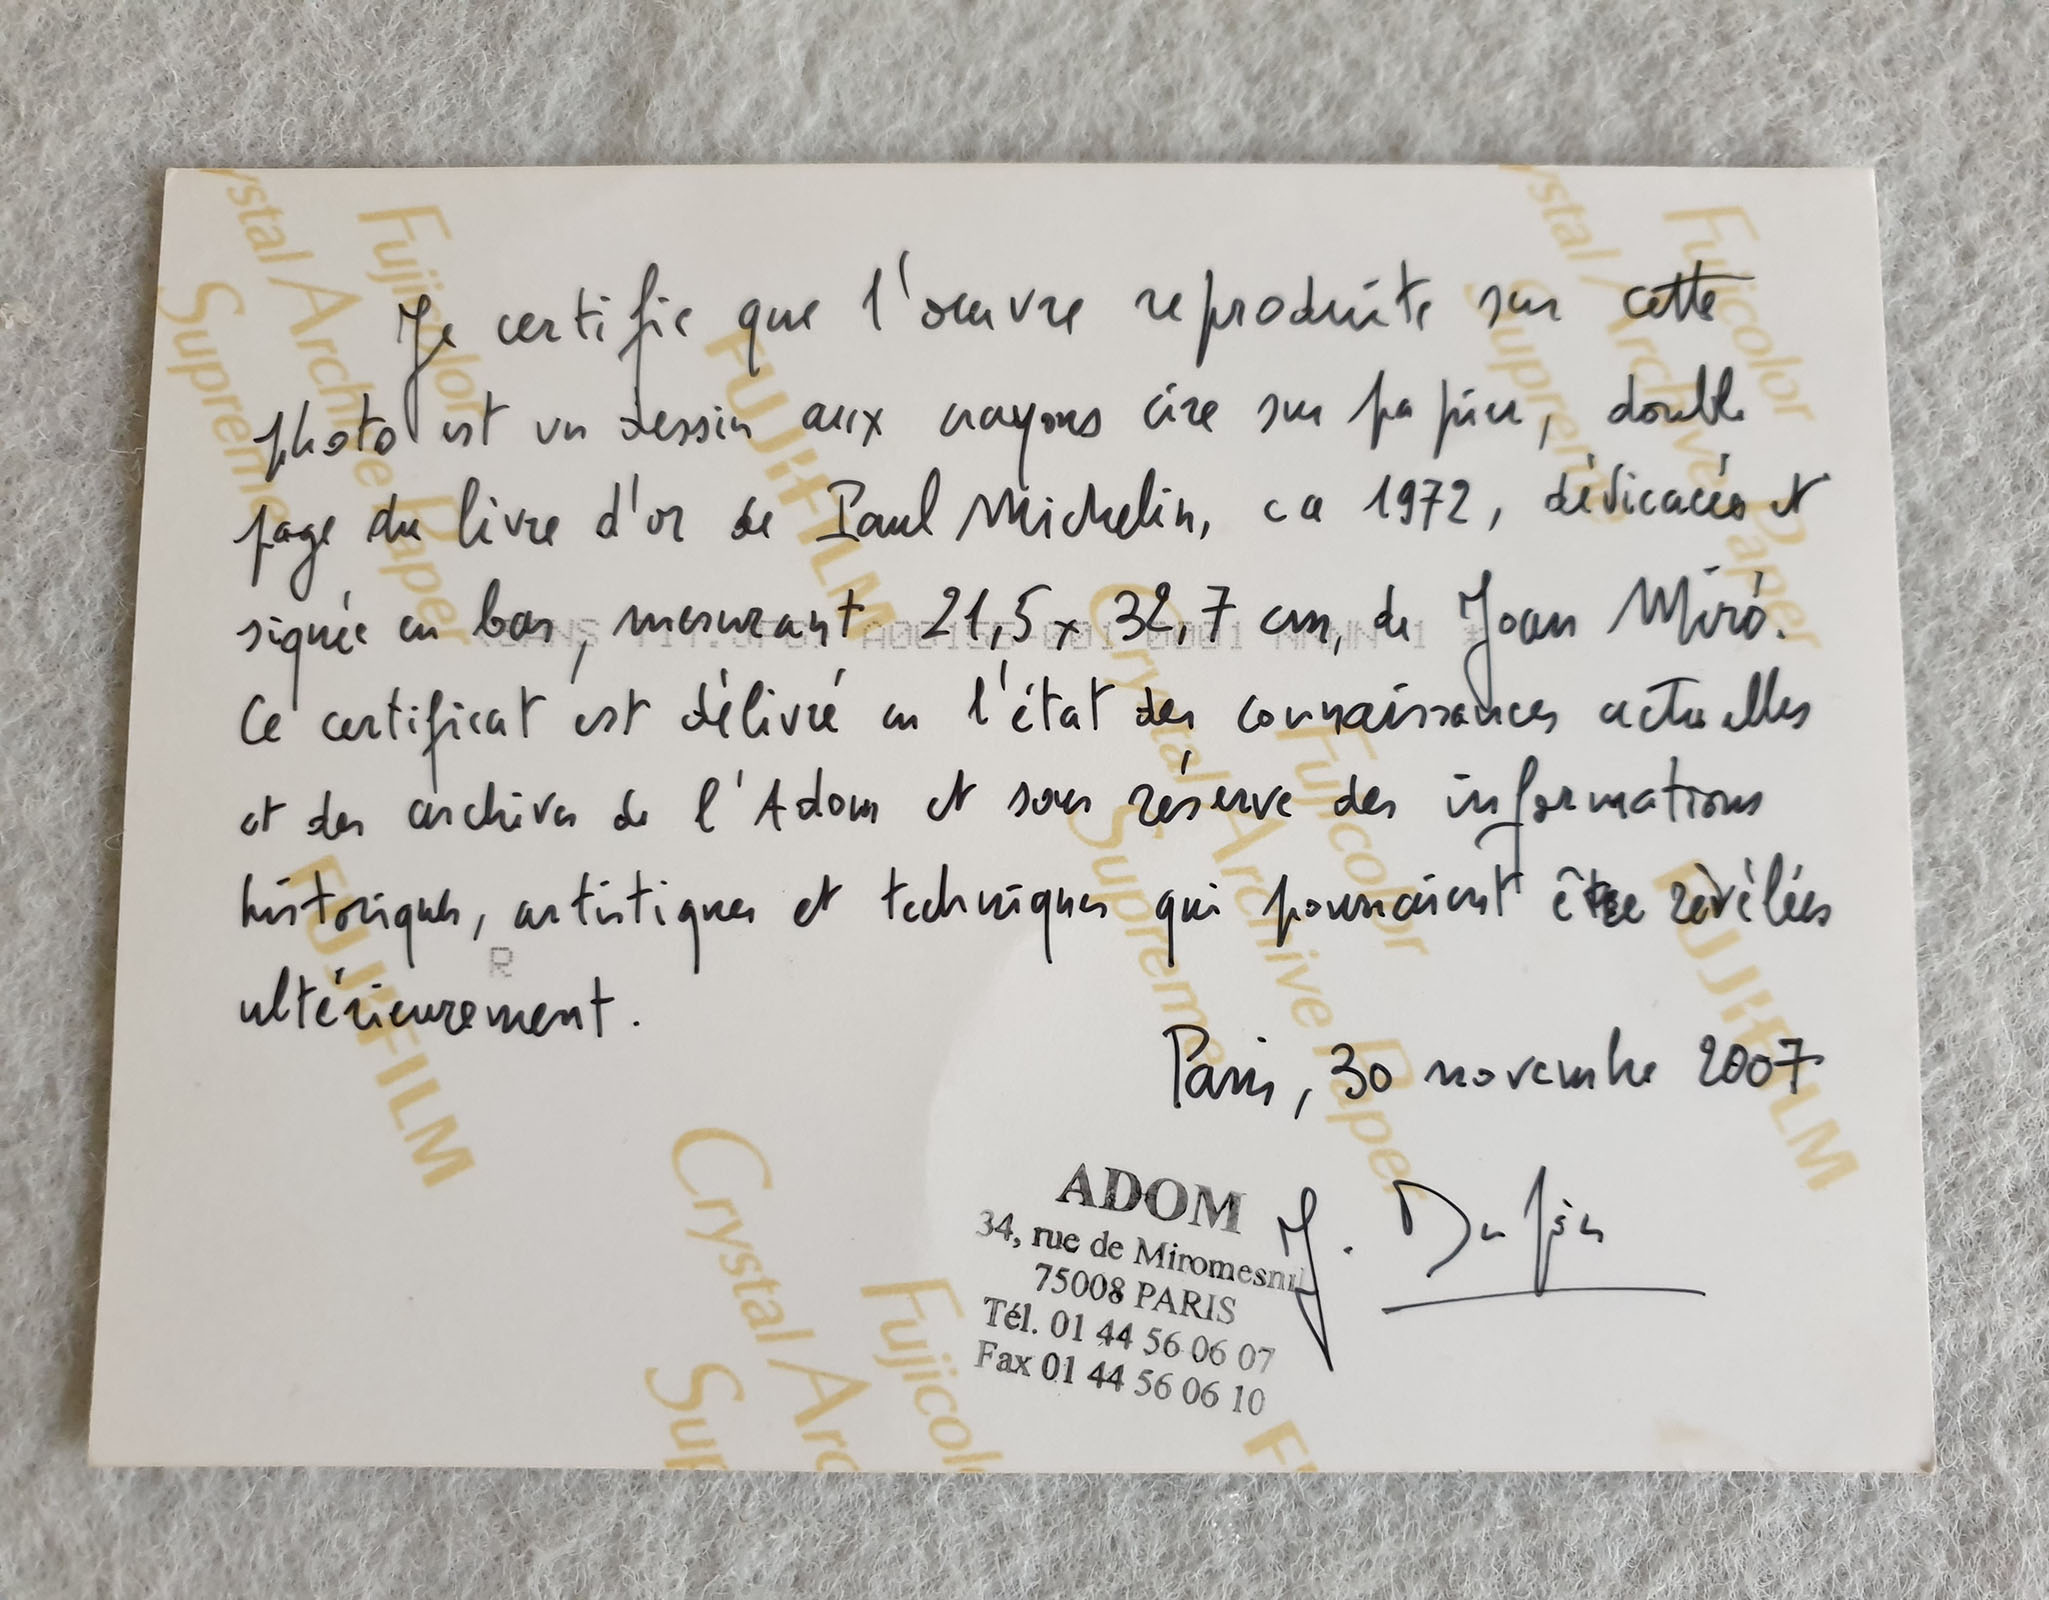 Je certifie que l'œuvre reproduite sur cette
photo est un dessin aux crayons cire sur papier, double
page du livre d'or de Paul Michelin, ca 1972, dédicacés et
signée en bas, mesurant 21,5 x 32,7 cm, de Joan Miró.
Ce certificat est délivré en l'état des connaissances actuelles
et des archives de l'Adom et sous réserve des informations
historiques, artistiques et techniques qui pourraient être révélées
ultérieurement.
Paris, 30 novembre 2007
J. Dupin
ADOM
34, rue de Miromesnil
75008 PARIS
Tél. 01 44 56 06 07
Fax 01 44 56 06 10
R
Fujicolor
Crystal Archive Paper
Supreme
FUJIFILM